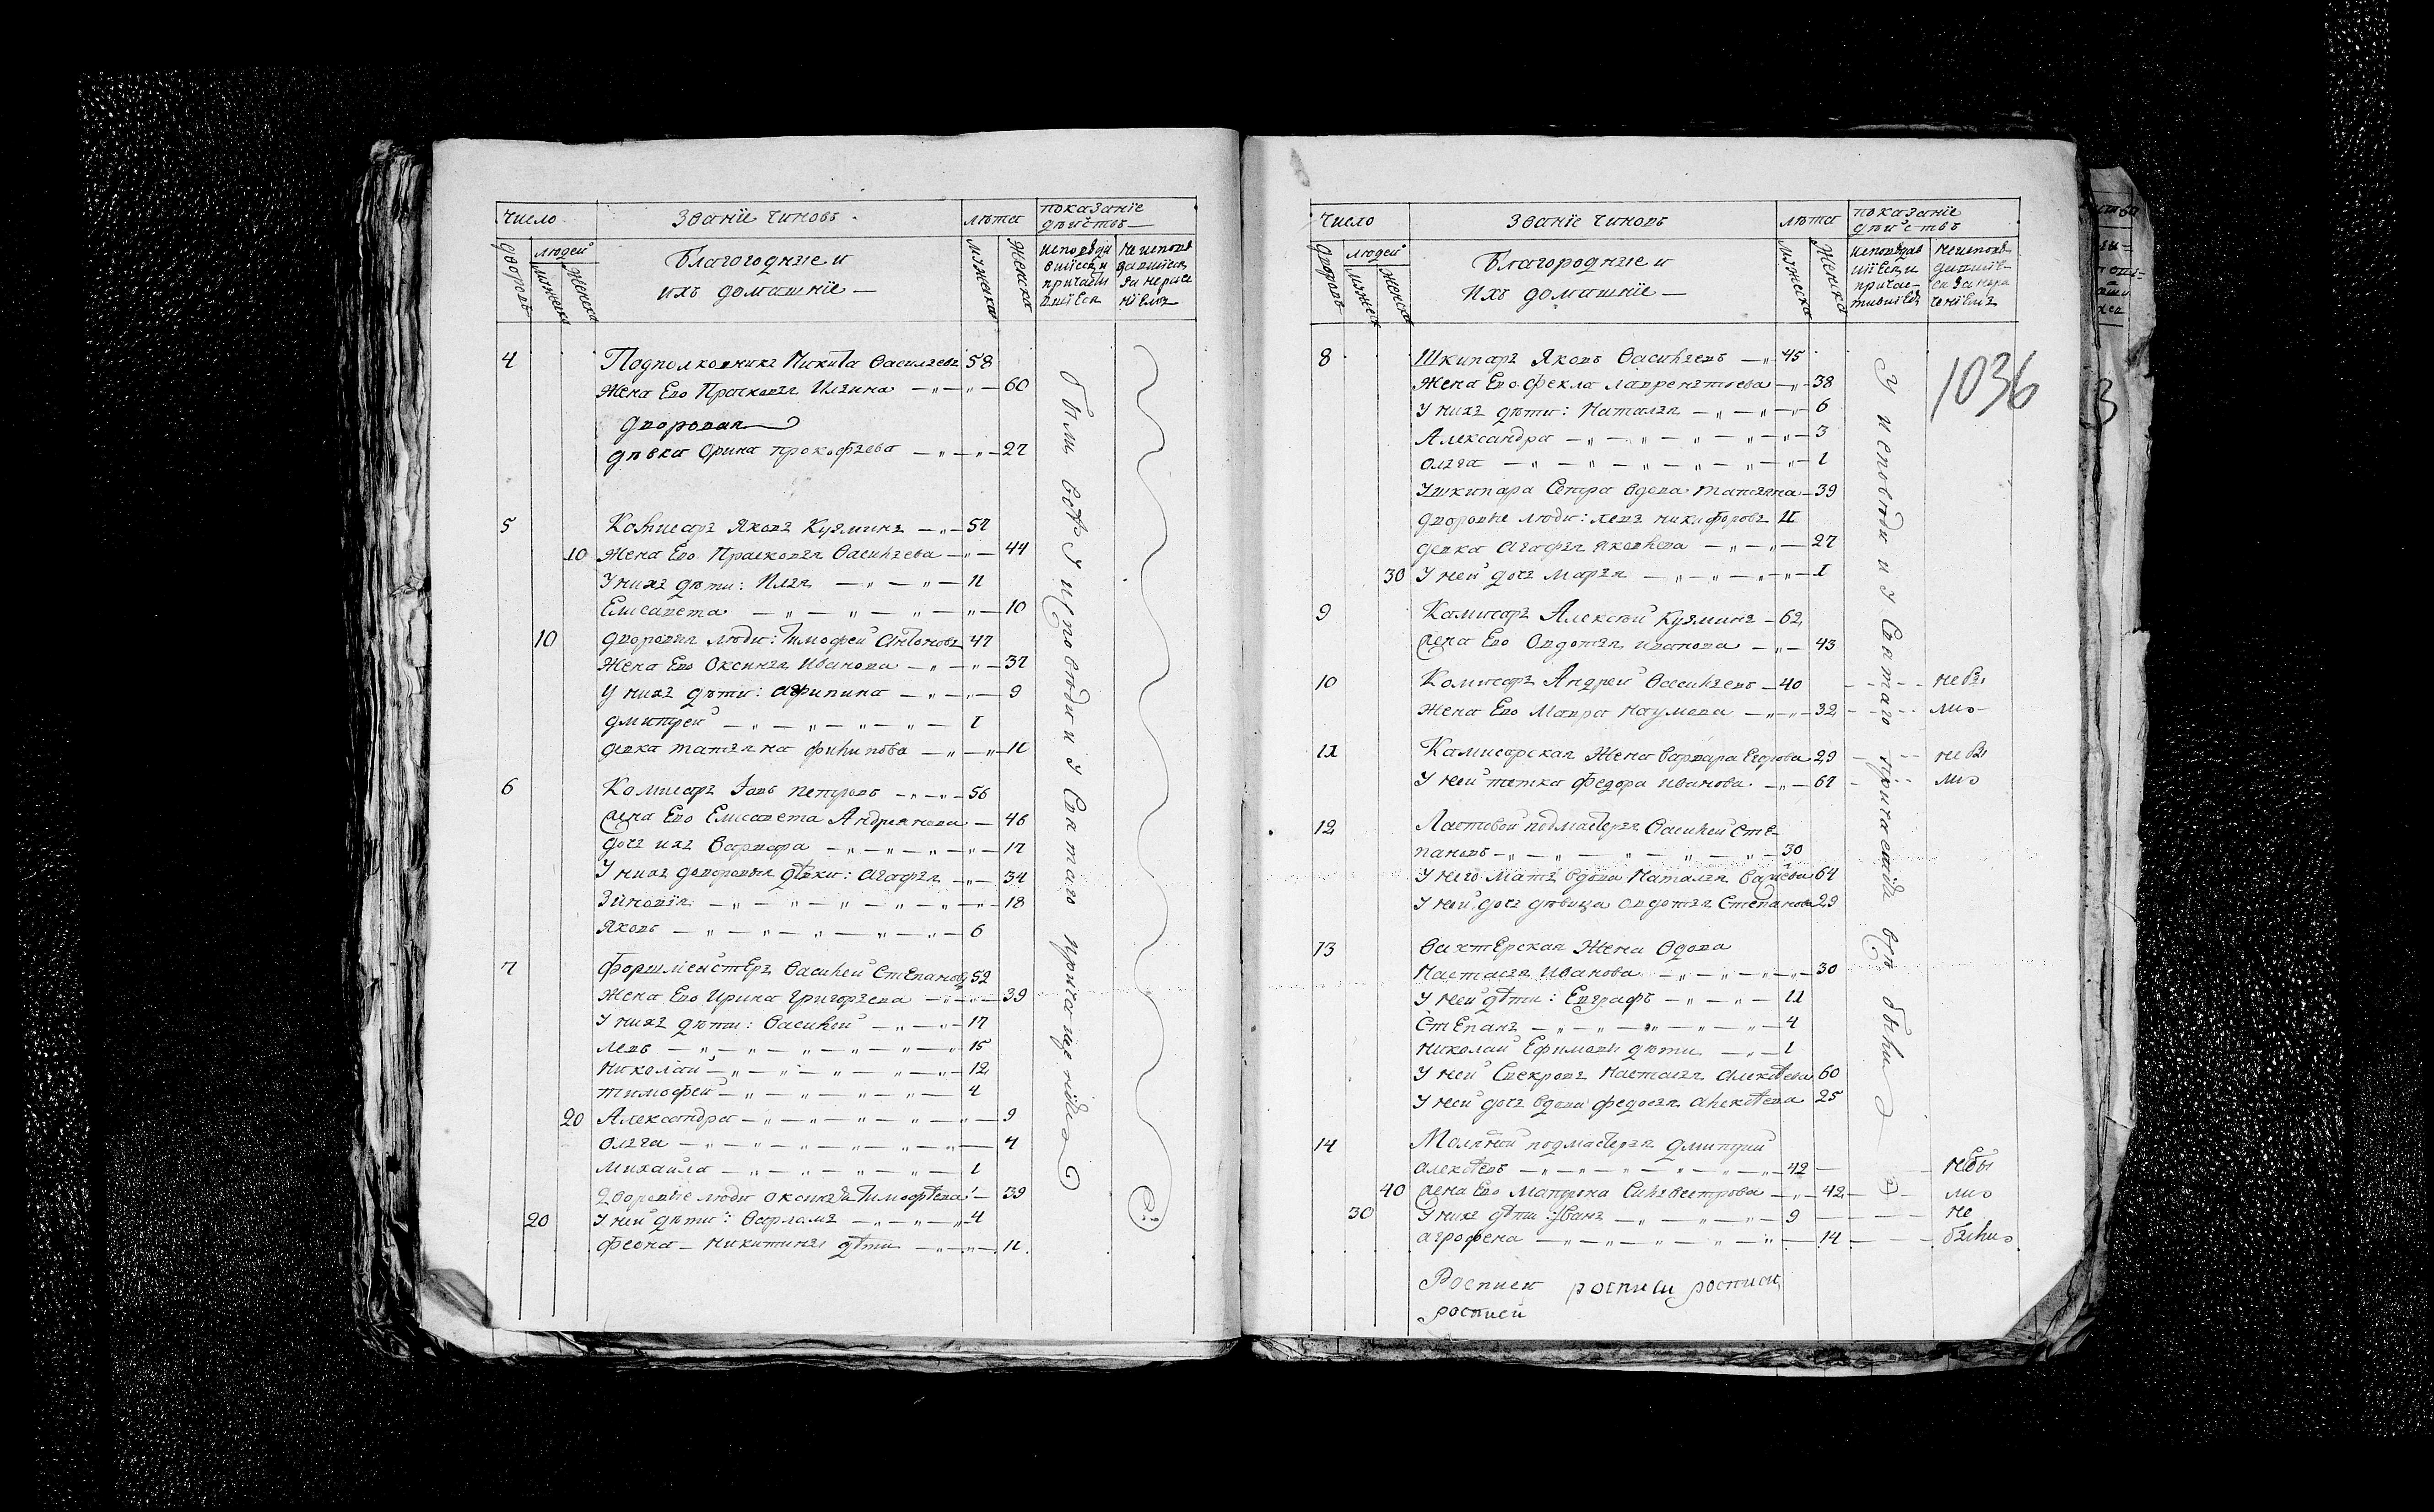 число званїе чиновъ лѣта показанїе дѣйствъ
дворовъ людей мужеска женска
Благородные и
ихъ домашнїе
мужеска женска
исповѣдавшїеся и причастившїеся
4 Подполковникъ Никита Василевъ 58
Жена Ево Прасковья Ильина 60
дворовая
дѣвка Орина прокофьева 27
5 Комисаръ Яковъ Кузминъ 57
10 Жена Ево Прасковья Васильева 44
У нихъ дѣти: Илья 11
Елисавета 10
10 дворовыя люди: Тимофей Антоновъ 47
Жена Ево Оксинья Иванова 37
У нихъ дѣти: агрипина 9
дмитрей 1
девка татьяна филипова 11
6 Комисаръ Iовъ петровъ 56
Жена Ево Елисавета Андреянова 46
дочь ихъ Варвара 17
У нихъ дворовыя дѣвки: агафья 34
Зиновїя 18
Яковъ 6
7 Форшмейстеръ Василей Степановъ 52
Жена Ево Ирина Григорьева 39
У нихъ дѣти: Василей 17
левъ 15
Николай 12
тимофей 4
20 Александра 9
Ольга 4
михаила 1
Дворовые люди оксинья Тимофѣева 39
20 У ней дѣти: Варламъ 4
феона Никитины дѣти 11
были всѣ У исповѣди и у Святаго причащенїя
число званїе чиновъ лѣта показанїе дѣйствъ
дворовъ людей мужеска женска
Благородные и
Ихъ домашнїе
мужеска женска
исповѣдавшїеся и причастившїеся
1036
8 Шкипаръ Яковъ Васильевъ 45
Жена Ево фекла лаврентьева 38
У нихъ дѣти: Наталья 6
Александра 3
Ольга 1
У шкипара Сестра вдова татьяна 39
дворовые люди: левъ никифоровъ 11
девка агафья яковлева 27
30 У ней дочь марья 1
9 Комисаръ Алексѣй Кузминъ 62
Жена Ево Овдотья иванова 43
10 Комисаръ Андрей Васильевъ 40 не бы
Жена Ево Мавра Наумова 32 ли
11 Камисарская Жена варвара Егорова 29 не бы
У ней тетка федора иванова 67 ли
12 Ластовой подмастерья Василей Сте-
пановъ 30
У него мать вдова Наталья 64
У ней дочь дѣвица овдотья Степанова 29
13 Вахтерская Жена Вдова
Настасья Иванова 30
У ней дѣти: Евграфъ 11
Степанъ 4
Николай Ефимовы дѣти 1
У ней Свекровь Настасья алексѣева 60
У ней дочь вдова федосья алексѣева 25
14 подмастерья дмитрий
алексѣевъ 42 не бы
40 Жена Ево матрона Сильвестрова 42 ли
30 У нихъ дѣти: Иванъ 9 не
агрофена 14 были
У исповѣди и у Святаго причастїя всѣ были
Росписи росписи росписи
росписи